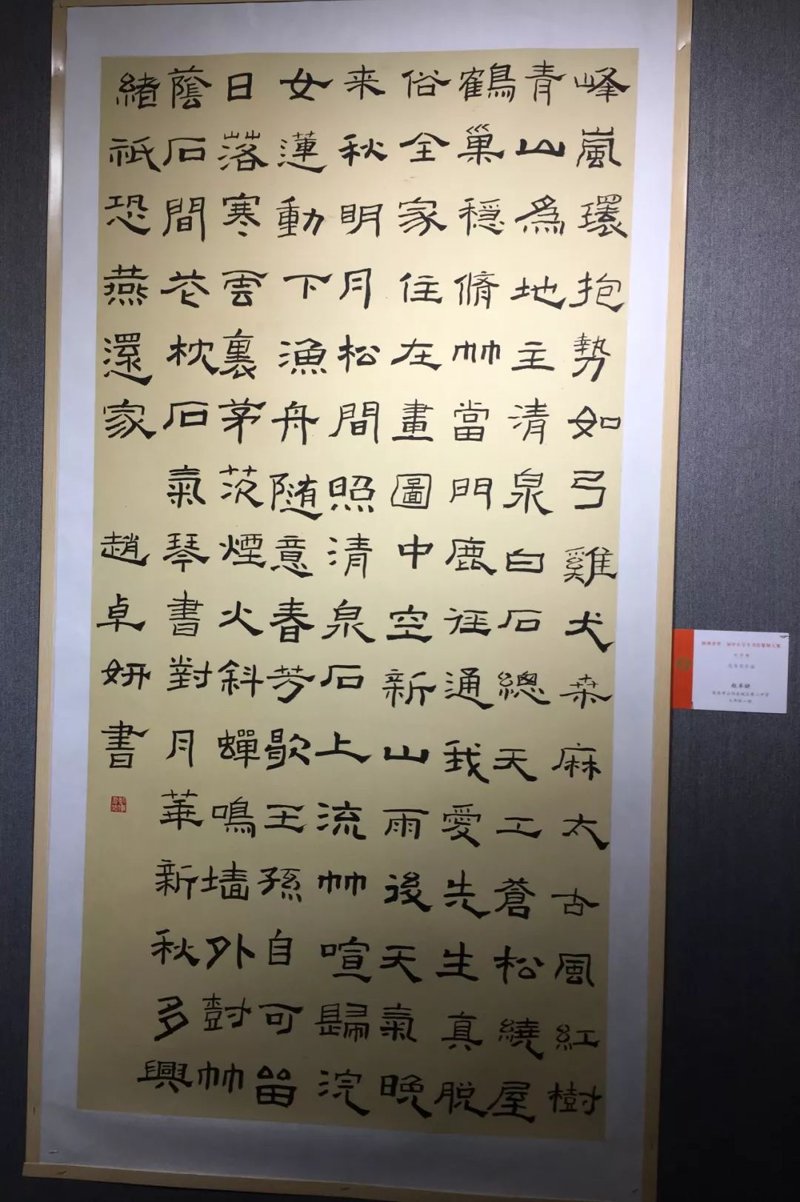 峰嵐環抱勢如弓雞犬桑麻太古風紅樹
青山為地主清泉白石總天工蒼松繞屋
鶴巢穩脩竹當門鹿徑通我愛先生真脫
俗全家住在畫圖中空新山雨後天氣晚
来秋明月松間照清泉石上流竹喧歸浣
女蓮動下漁舟随意春芳歇王孫自可留
日落寒雲裏茅茨煙火斜蟬鳴墙外竹
蔭石間芲枕石氣琴書對月華新秋多興
緒祇恐燕還家 趙卓妍書